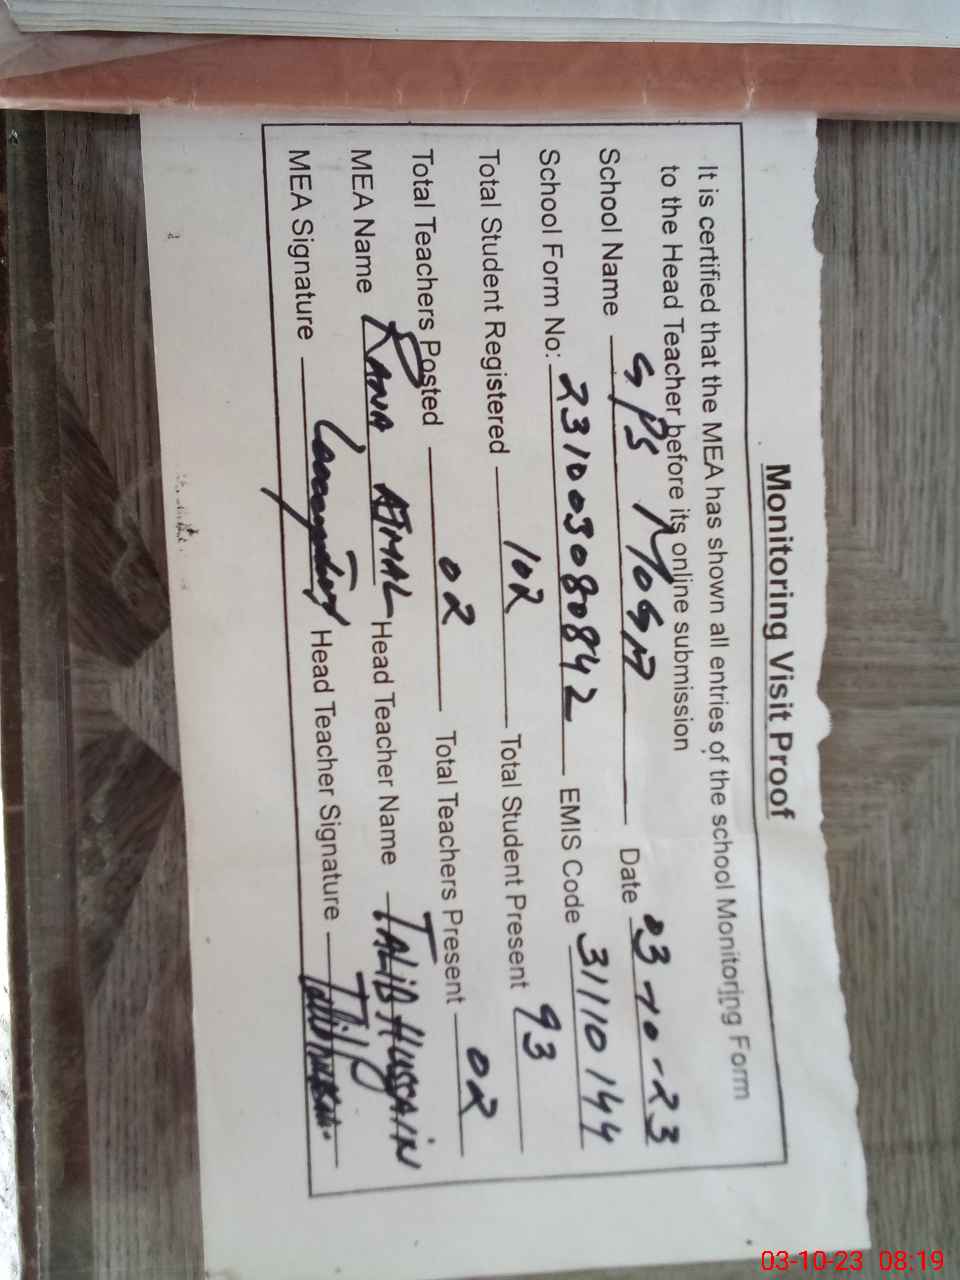 Monitoring Visit Proof
It is certified that the MEA has shown all entries of the school Monitoring Form
to the Head Teacher before its online submission
School Name GPS MOGA Date 03-10-23
School Form No: 231003080842 EMIS Code 31110144
Total Student Registered 102 Total Student Present 93
Total Teachers Posted 02 Total Teachers Present 02
MEA Name RANA AJMAL Head Teacher Name TALIB HUSSAIN
MEA Signature Head Teacher Signature
03-10-23 08:19